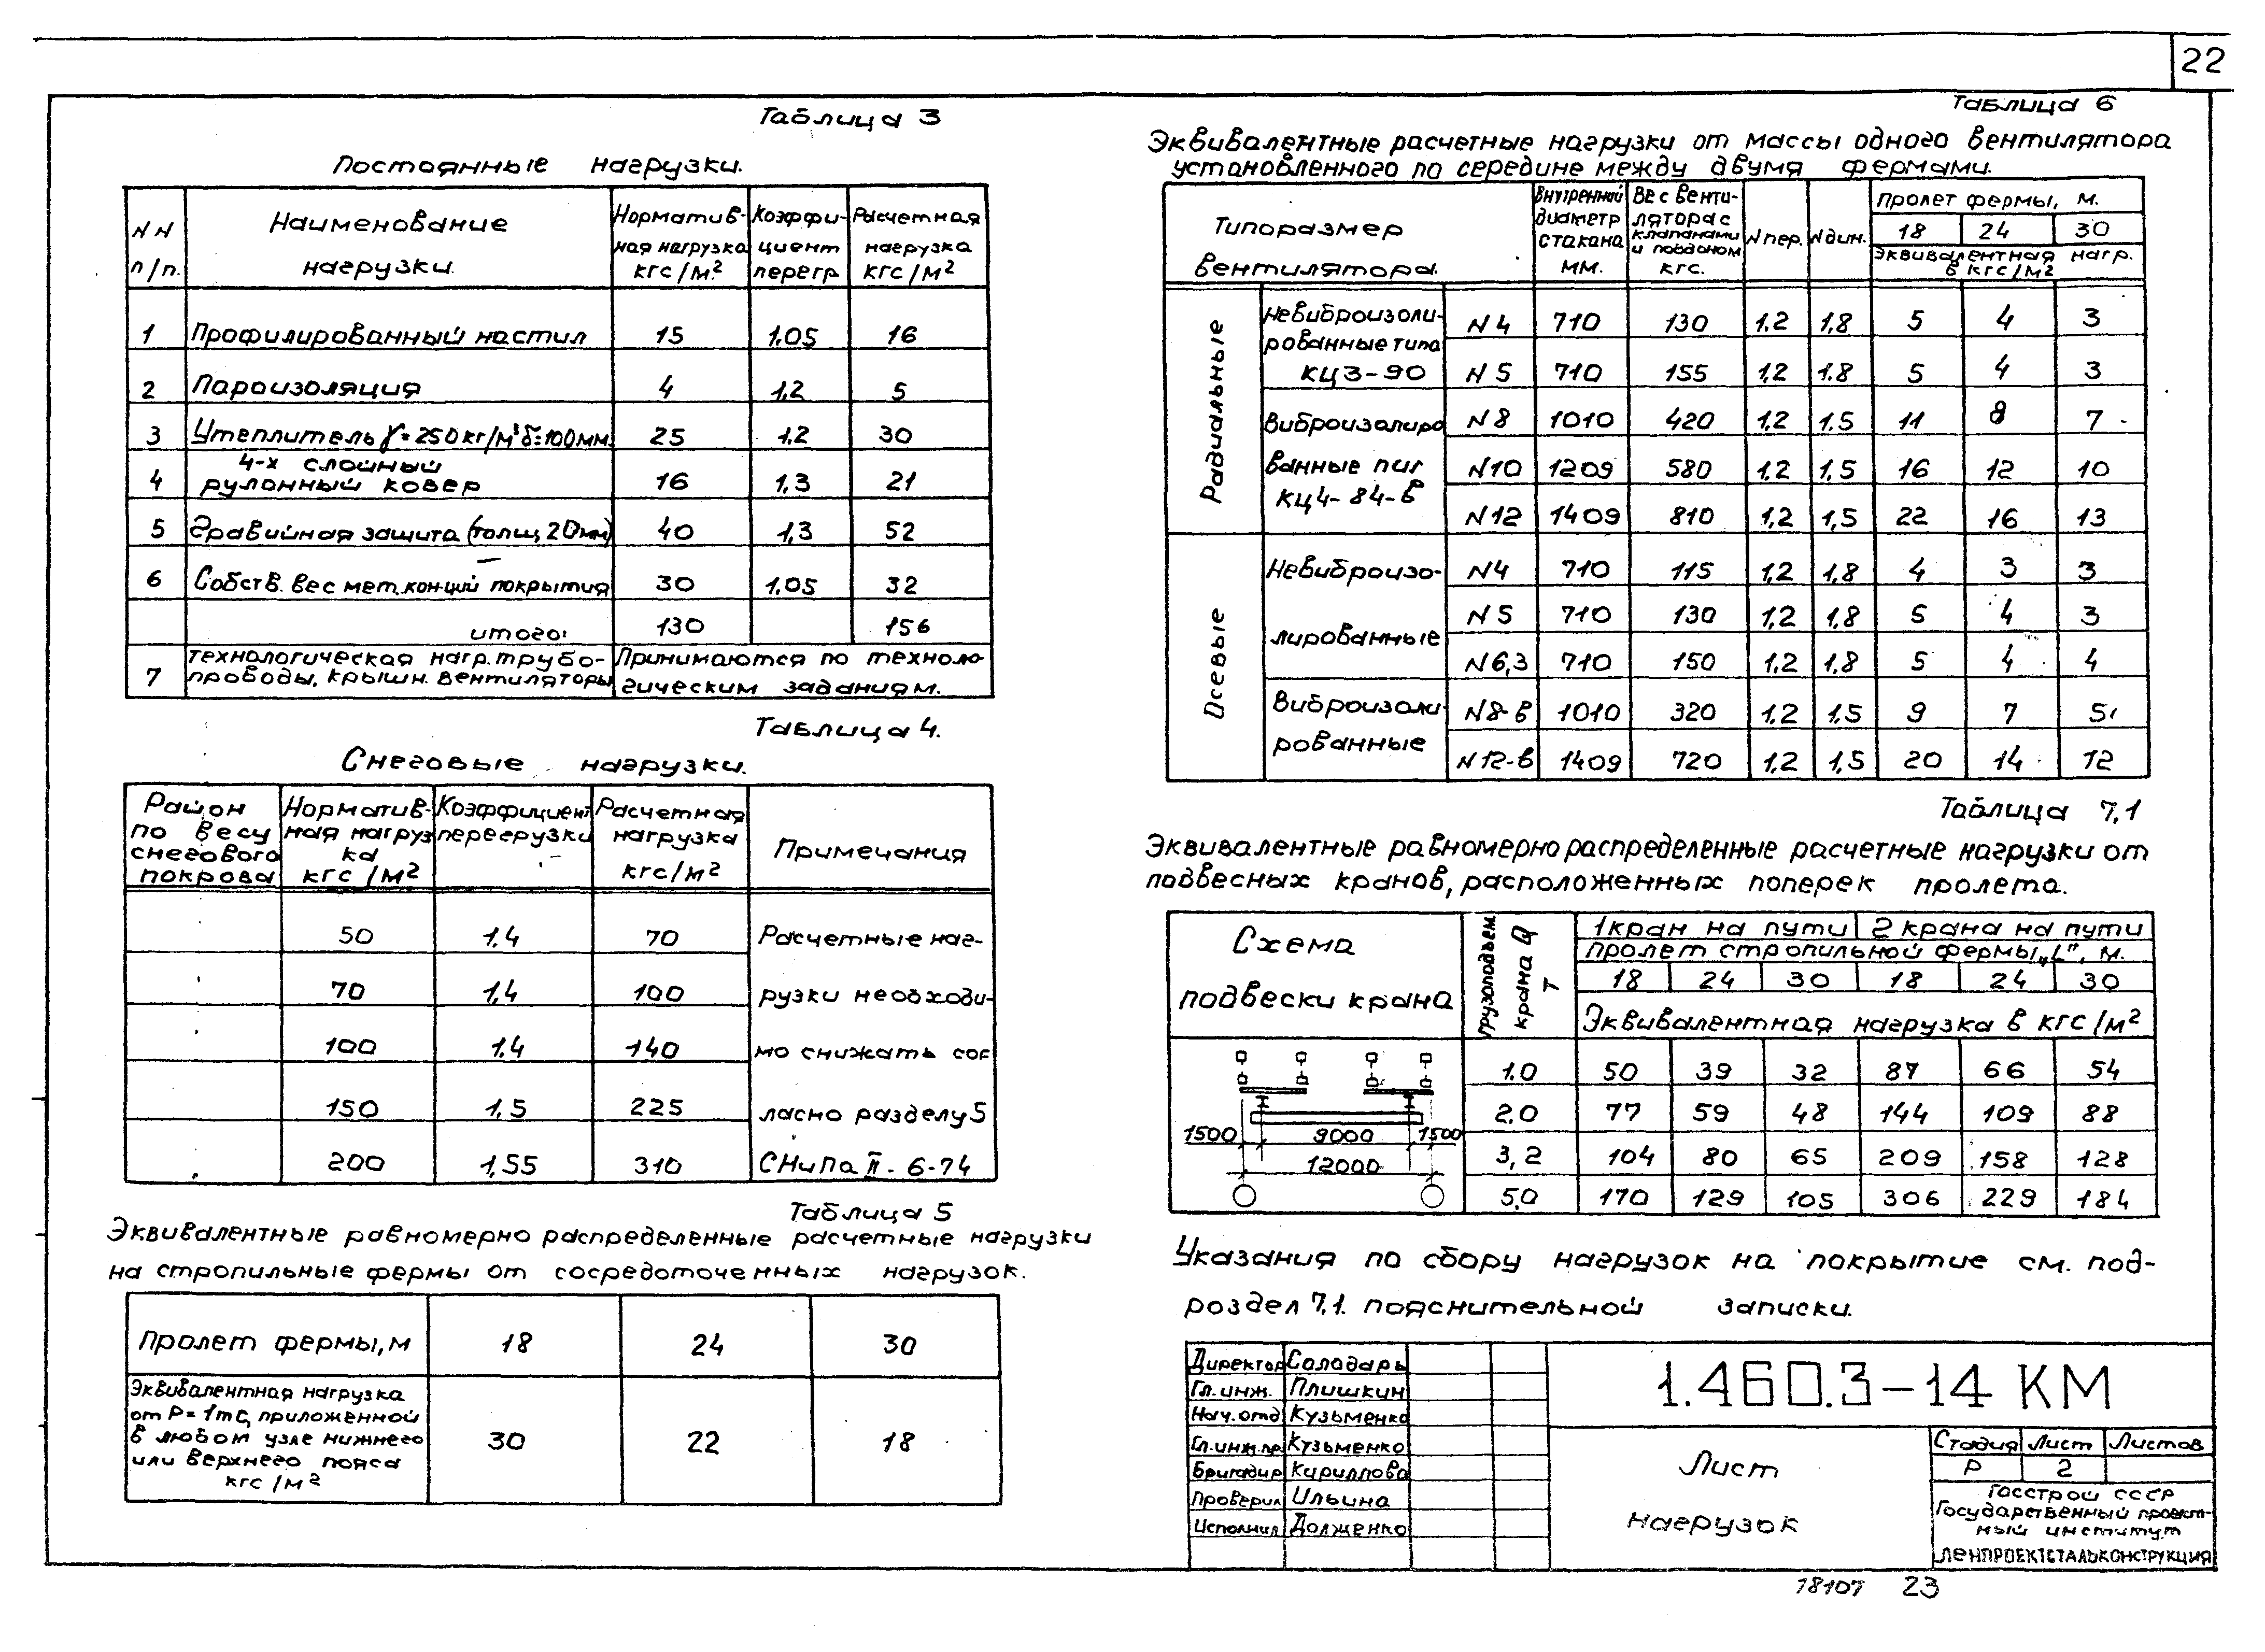 22
Таблица 3
Постоянные нагрузки.
NN п/п. Наименование нагрузки. Нормативная нагрузка кгс/м² Коэффициент перегр Расчетная нагрузка кгс/м²
1 Профилированный настил 15 1.05 16
2 Пароизоляция 4 1,2 5
3 Утеплитель γ=250кг/м³ δ=100мм. 25 1,2 30
4 4-х слойный рулонный ковер 16 1,3 21
5 Гравийная защита (толщ. 20мм) 40 1,3 52
6 Собств. вес мет. кон-ций покрытия 30 1.05 32
итого: 130 156
7 технологическая нагр. трубопроводы, крышн. вентиляторы Принимаются по технологическим заданиям.
Таблица 4.
Снеговые нагрузки.
Район по весу снегового покрова Нормативная нагрузка кгс/м² Коэффициент перегрузки Расчетная нагрузка кгс/м² Примечания
50 1.4 70 Расчетные наг-
70 1,4 100 рузки необходи-
100 1,4 140 мо снижать сог
150 1,5 225 ласно разделу 5
200 1,55 310 СНиПа II-6-74
Таблица 5
Эквивалентные равномерно распределенные расчетные нагрузки
на стропильные фермы от сосредоточенных нагрузок.
Пролет фермы, м 18 24 30
Эквивалентная нагрузка
от P=1тс, приложенной
в любом узле нижнего
или верхнего пояса
кгс/м²
30 22 18
Таблица 6
Эквивалентные расчетные нагрузки от массы одного вентилятора
установленного по середине между двумя фермами.
Типоразмер вентилятора. Внутренний диаметр стакана мм. Вес вентилятора с клапанами и поддоном кгс. N пер. N дин. Пролет фермы, м.
18 24 30
Эквивалентная нагр. в кгс/м²
Радиальные
Невиброизолированные типа КЦ3-90
N4 710 130 1,2 1,8 5 4 3
N5 710 155 1,2 1.8 5 4 3
Виброизолированные тип КЦ4-84-в
N8 1010 420 1,2 1,5 11 8 7
N10 1209 580 1,2 1,5 16 12 10
N12 1409 810 1,2 1,5 22 16 13
Осевые
Невиброизолированные
N4 710 115 1,2 1,8 4 3 3
N5 710 130 1,2 1,8 5 4 3
N6,3 710 150 1,2 1,8 5 4 4
Виброизолированные
N8-в 1010 320 1,2 1,5 9 7 5
N12-в 1409 720 1,2 1,5 20 14 12
Таблица 7,1
Эквивалентные равномерно распределенные расчетные нагрузки от
подвесных кранов, расположенных поперек пролета.
Схема подвески крана Грузоподъем. крана Q т 1 кран на пути 2 крана на пути
Пролет стропильной фермы „L", м.
18 24 30 18 24 30
Эквивалентная нагрузка в кгс/м²
1.0 50 39 32 87 66 54
2.0 77 59 48 144 109 88
3,2 104 80 65 209 158 128
5,0 170 129 105 306 229 184
1500 9000 1500
12000
Указания по сбору нагрузок на покрытие см. под-
роздел 7,1. пояснительной записки.
Директор Солодарь
Гл. инж. Плишкин
Нач. отд Кузьменко
Гл. инж. пр. Кузьменко
Бригадир Кириллова
Проверил Ильина
Исполнил Долженко
1.460.3-14 КМ
Лист
нагрузок
Стадия Лист Листов
Р 2
Госстрой СССР
Государственный проект-
ный институт
ЛЕНПРОЕКТСТАЛЬКОНСТРУКЦИЯ
18107 23